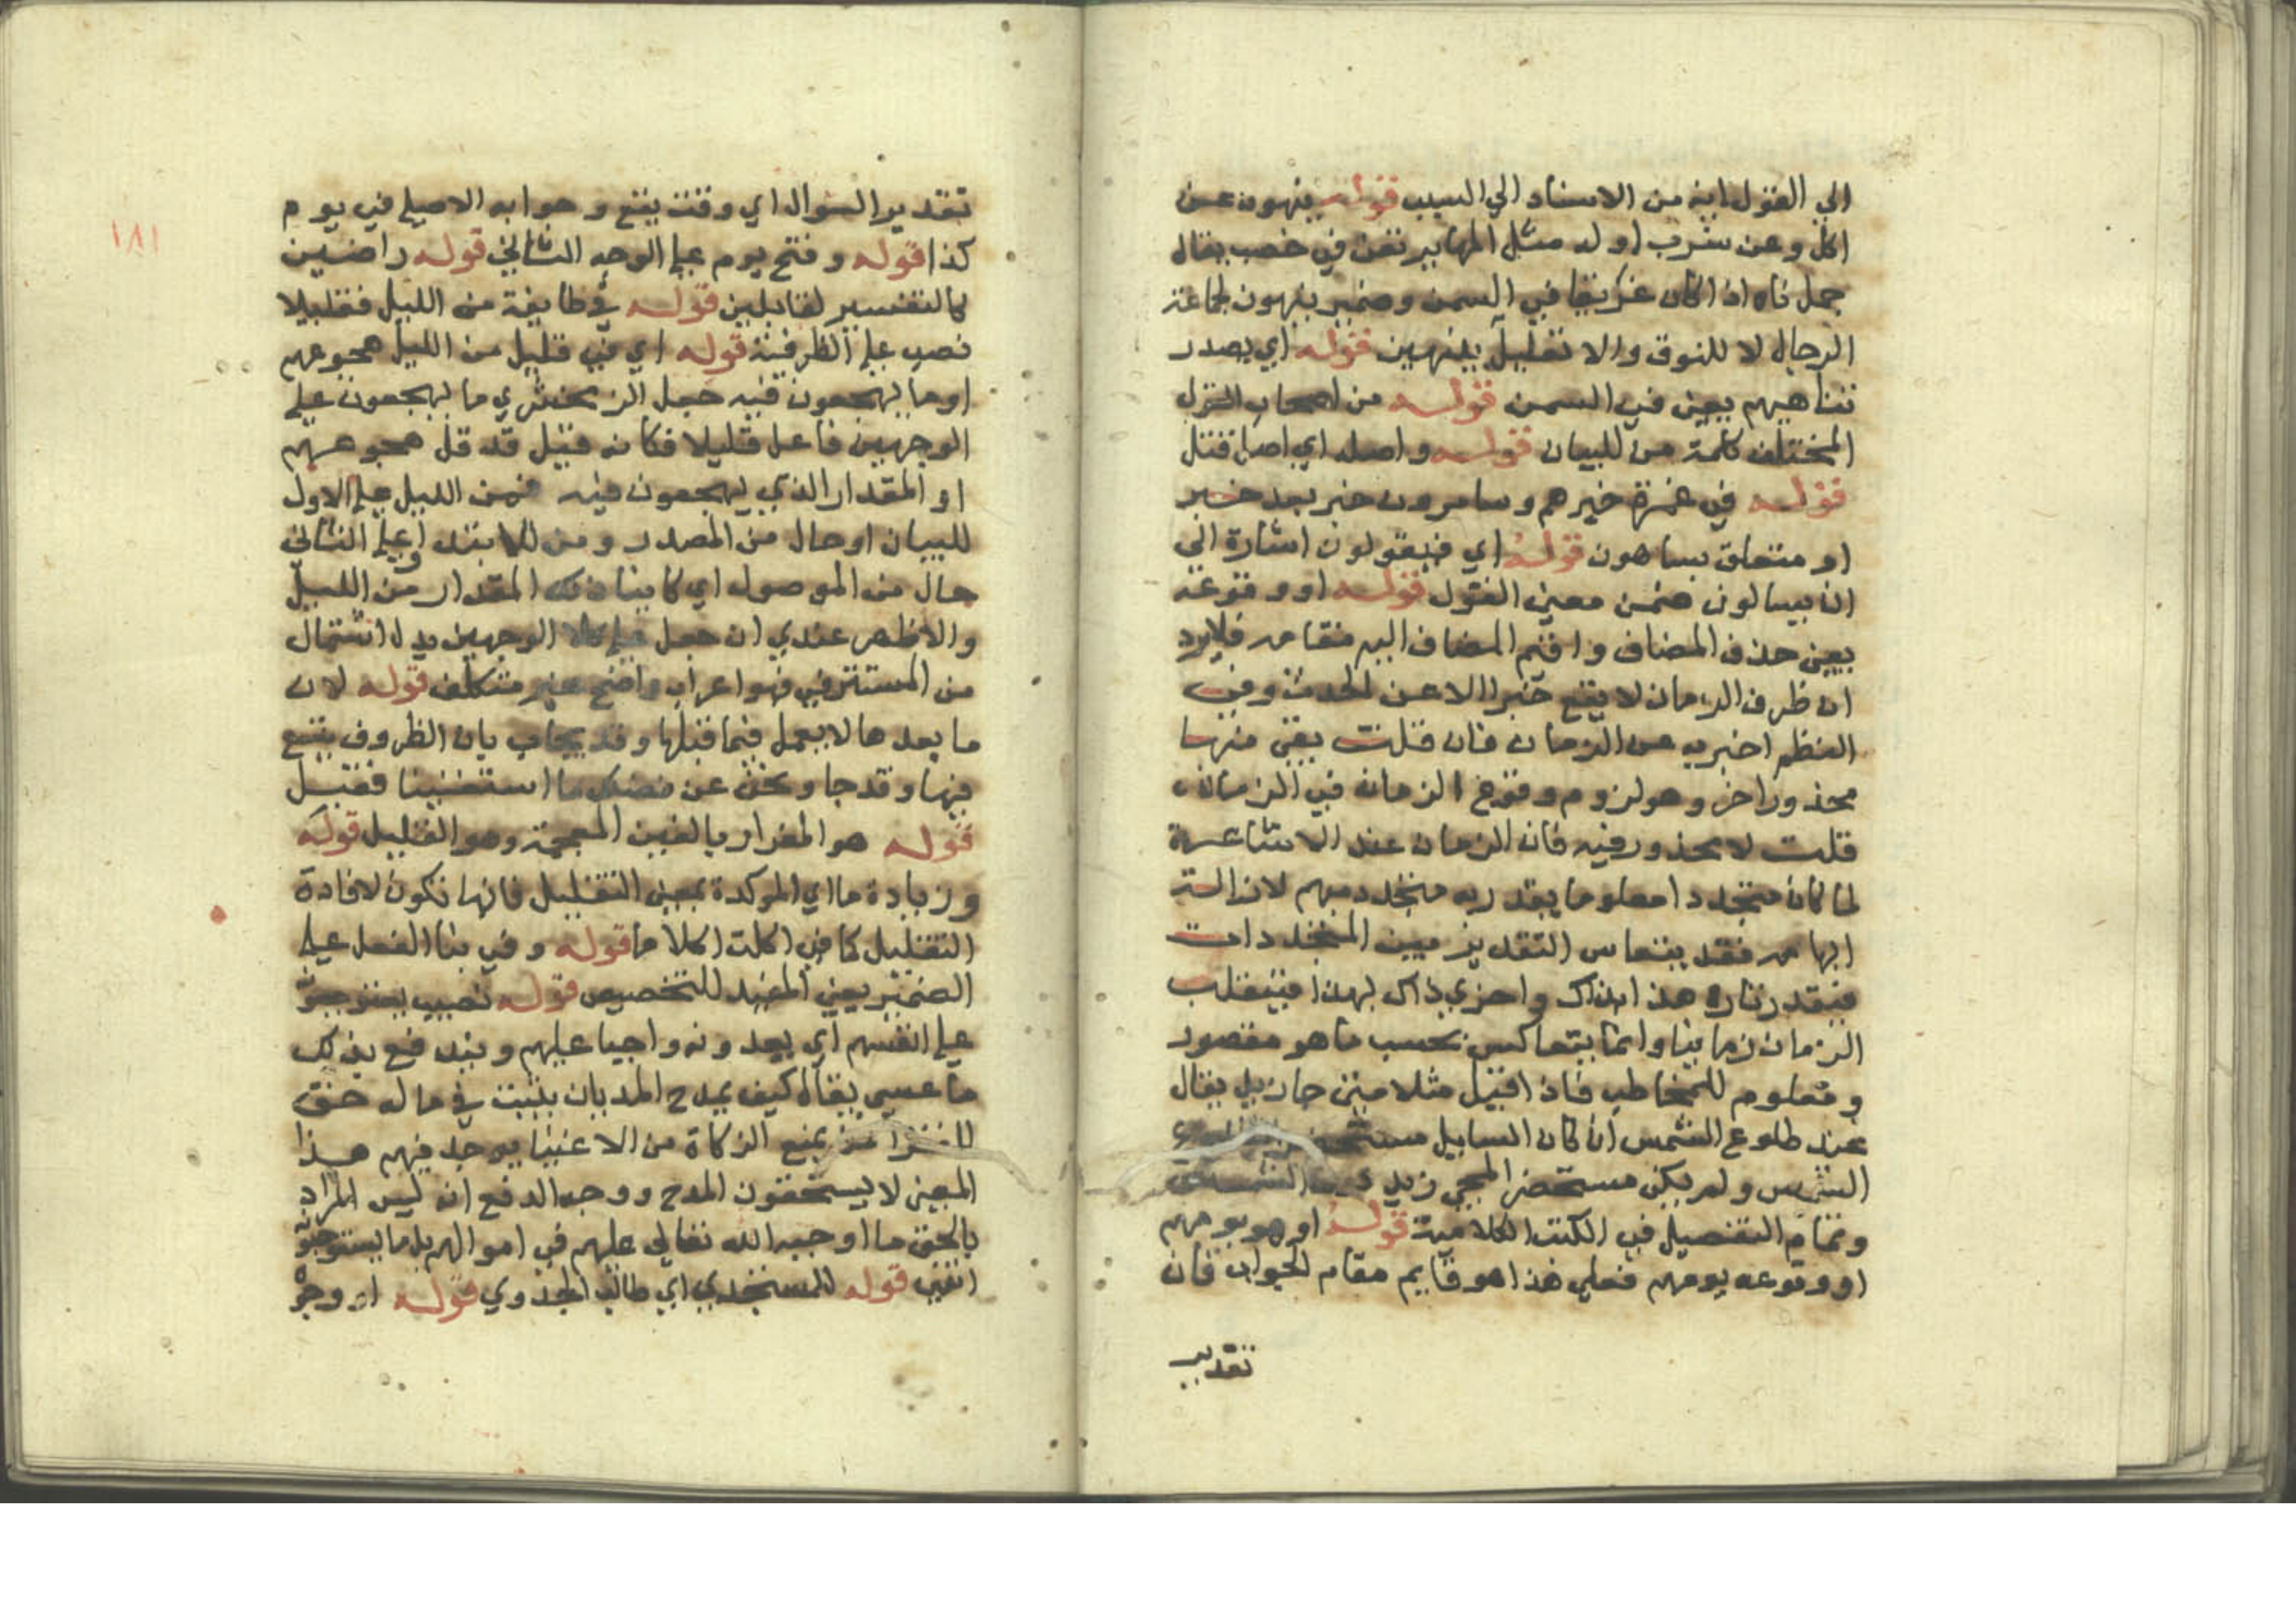 الي القول اينه من الاسناد الي السبب قوله ينهون عن
اكل وعن شرب اوله مثل المها يرتعن في خصب يقال
جمل ناه اذا كان غريقا في السمن وضمير ينهون لجماعة
الرجال لا للنوق والا لقيل ينهين قوله اي يصدر
تناهيهم يعني في السمن قوله من اصحاب القول
المختلف كلمة من للبيان قوله واصله اي اصل قتل
قوله في غمرة خبرهم وساهون خبر بعد خبر
او متعلق بساهون قوله اي فيقولون اشارة الي
ان يسالون ضمن معني القول قوله او وقوعه
يعني حذف المضاف واقيم المضاف اليه مقامه فلا يرد
ان ظرف الزمان لا يقع خبرا الا عن الحدث وفي
النظم اخبر به عن الزمان فان قلت بقي منها
محذور اخر وهو لزوم وقوع الزمان في الزمان
قلت لا محذور فيه فان الزمان عند الاشاعرة
لما كان متجددا معلوما يقدر به متجدد مبهم لازالة
ابهامه فقد يتعاس التقدير بين المتجددات
فيقدر تارة هذا بذاك واخري ذاك بهذا فينقلب
الزمان زمانيا وانما يتعاكس بحسب ما هو مقصور
ومعلوم للمخاطب فاذا قيل مثلا متي جا زيد يقال
عند طلوع الشمس ان كان السايل مستحضر
الشمس ولم يكن مستحضر المجي زيد
وتمام التفصيل في الكتب الكلامية قوله او هو يومهم
او وقوعه يومهم فعلي هذا هو قايم مقام الجواب فان
تقدير
١٨١
تقدير السوال اي وقت يقع وجوابه الاصلي في يوم
كذا قوله وفتح يوم علي الوجه الثاني قوله راضين
كالتفسير لقابلين قوله في طايفة من الليل فقليلا
نصب علي الظرفية قوله اي في قليل من الليل هجوعهم
او ما يهجعون فيه جعل الزمخشري ما يهجعون علي
الوجهين فاعل قليلا فكانه قيل قد قل هجوعهم
او المقدار الذي يهجعون فيه فمن الليل علي الاول
للبيان او حال من المصدر ومن للابتدا وعلي الثاني
حال من الموصول اي كاينا ذلك المقدار من الليل
والاظهر عندي ان جعل علي كلا الوجهين بدل اشتمال
من المستتر في فهو اعراب واضح غير متكلف قوله لان
ما بعدها لا يعمل فيما قبلها وقد يجاب بان الظروف يتسع
فيها وقد جا ونحن عن فضلك ما استغنينا فقيل
قوله هو الغرار بالغين المعجمة وهو القليل قوله
وزيادة ما اي الموكدة بمعني التقليل فانها تكون لافادة
التقليل كما في اكلت اكلا ما قوله وفي بنا الفعل علي
الضمير يعني المفيد للتخصيص قوله نصيب يستوجبونه
علي انفسهم اي يعدونه واجبا عليهم ويندفع بذلك
ما عسي يقال كيف يمدح المد بان يثبت في ماله حق
للفقرا يمنع الزكاة من الاغنيا يوجد فيهم هذا
المعني لا يستحقون المدح ووجه الدفع انه ليس المراد
بالحق ما اوجبه الله تعالي عليهم في اموالهم بل ما يستوجبونه
انفي قوله للمستجدي اي طالب الجدوي قوله او وجوه